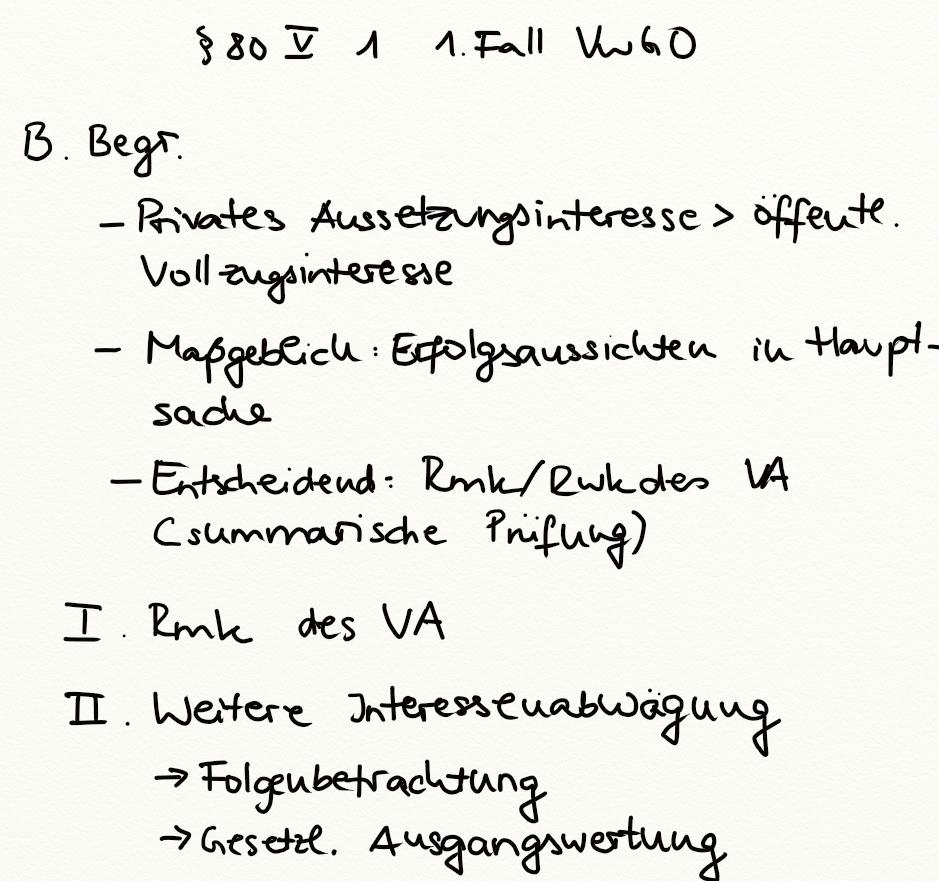 § 80 V 1 1. Fall VwGO
B. Begr.
– Privates Aussetzungsinteresse > öffentl.
Vollzugsinteresse
– Maßgeblich: Erfolgsaussichten in Haupt-
sache
– Entscheidend: Rmk/Rwk des VA
(summarische Prüfung)
I. Rmk des VA
II. Weitere Interessenabwägung
→ Folgenbetrachtung
→ Gesetzl. Ausgangswertung